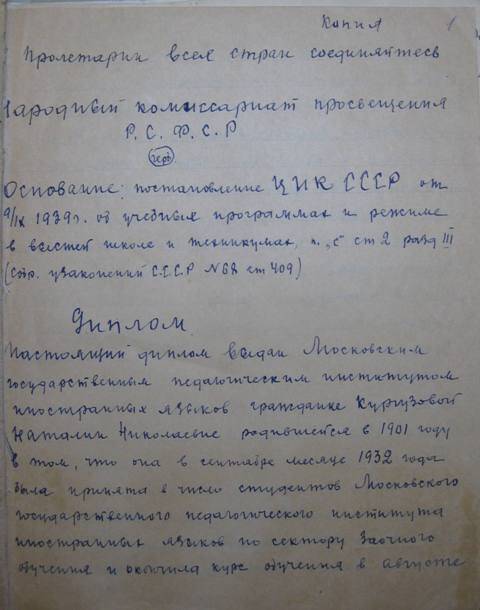 Копия 1
Пролетарии всех стран соединяйтесь
Народный комиссариат просвещения
Р.С.Ф.С.Р
герб
Основание: постановление ЦИК СССР от
9/IX 1939г. об учебных программах и режиме
в высшей школе и техникумах, п. "с" ст 2 разд III
(Собр. узаконений СССР № 68 ст 409)
Диплом
Настоящий диплом выдан Московским
государственным педагогическим институтом
иностранных языков гражданке Кургузовой
Наталии Николаевне родившейся в 1901 году
в том, что она в сентябре месяце 1932 года
была принята в число студентов Московского
государственного педагогического института
иностранных языков по сектору Заочного
обучения и окончила курс обучения в августе